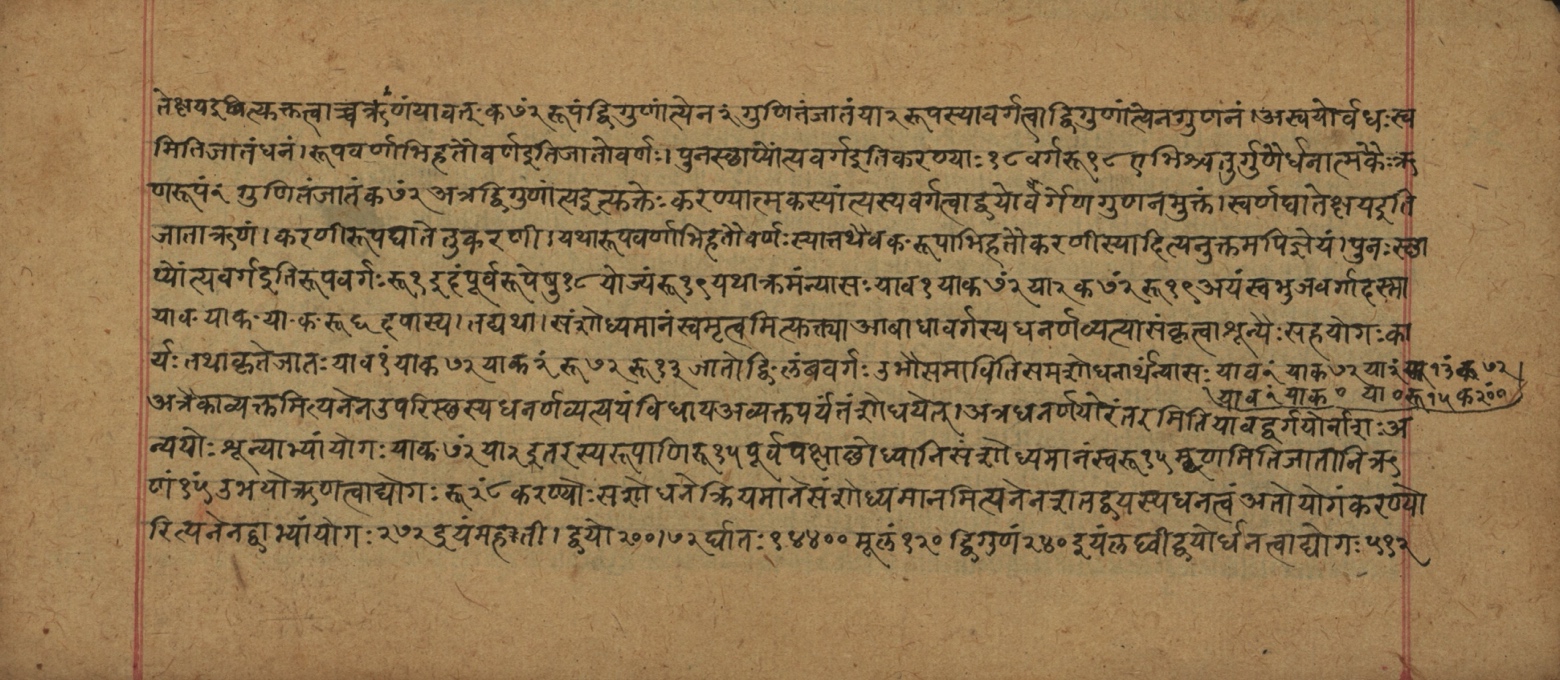 तेक्षयइत्युक्तत्वाच्चऋणंयावत् क ७ं२ रूपंद्विगुणांत्येन २ गुणितंजातंया २ रूपस्यावर्गत्वाद्विगुणांत्येनगुणनं। अस्वयोर्वधःस्व
मितिजातंधनं। रूपवर्णाभिहतौवर्णइतिजातोवर्णः। पुनस्छाप्योंत्यवर्गइतिकरण्याः १८ वर्गरू १८ एभिश्चतुर्गुणैर्धनात्मकैःऋ
णरूपं १ं गुणितंजातंक ७ं२ अत्रद्विगुणांत्यइत्युक्तेः करण्यात्मकस्यांत्यस्यवर्गत्वाद्द्वयोर्वर्गेणगुणनमुक्तं। स्वर्णघातेक्षयइति
जाताऋणं। करणीरूपघातेतुकरणी। यथारूपवर्णाभिहतौवर्णःस्यात्तथैवक रूपाभिहतौकरणीस्यादित्यनुक्तमपिज्ञेयं। पुनःस्छा
प्योंत्यवर्गइतिरूपवर्गः रू १ इदंपूर्वरूपेषु १८ योज्यंरू १९ यथाक्रमंन्यासः याव १ याक ७ं२ या २ क ७ं२ रू १९ अयंस्वभुजवर्गादस्मा
याव याक या क रू तद्यथा। संशोध्यमानंस्वमृत्वमित्युक्त्याआबाधावर्गस्यधनर्णव्यत्यासंकृत्वाशून्यैःसहयोगःका
र्यः तथाकृतेजातः याव १ं याक ७२ जातोद्वि लंबवर्गः उभौसमावितिसमशोधनार्थंन्यासः
अत्रैकाव्यक्तमित्यनेनउपरिस्छस्यधनर्णव्यत्ययंविधायअव्यक्तपर्यंतंशोधयेत्। अत्रधनर्णयोरंतरमितियावद्वर्गयोर्नाशःअ
न्ययोः शून्याभ्यांयोगः याक ७ं२ या २ इतरस्यरूपाणिरू १५ पूर्वपक्षाछोध्यानिसंशोध्यमानंस्वरू १५ मृणमितिजातानिऋ
णं १५ं उभयोऋणत्वाद्योगः रू २ं८ करण्योः सशोधनेक्रियमानेसंशोध्यमानमित्यनेनशतद्वयस्यधनत्वंअतोयोगंकरण्यो
रित्यनेनद्वाभ्यांयोगः २७२ इयंमहती। द्वयो २००।७२ र्घातः १४४०० मूलं १२० द्विगुणं २४० इयंलघ्वीद्वयोर्धनत्वाद्योगः ५१२